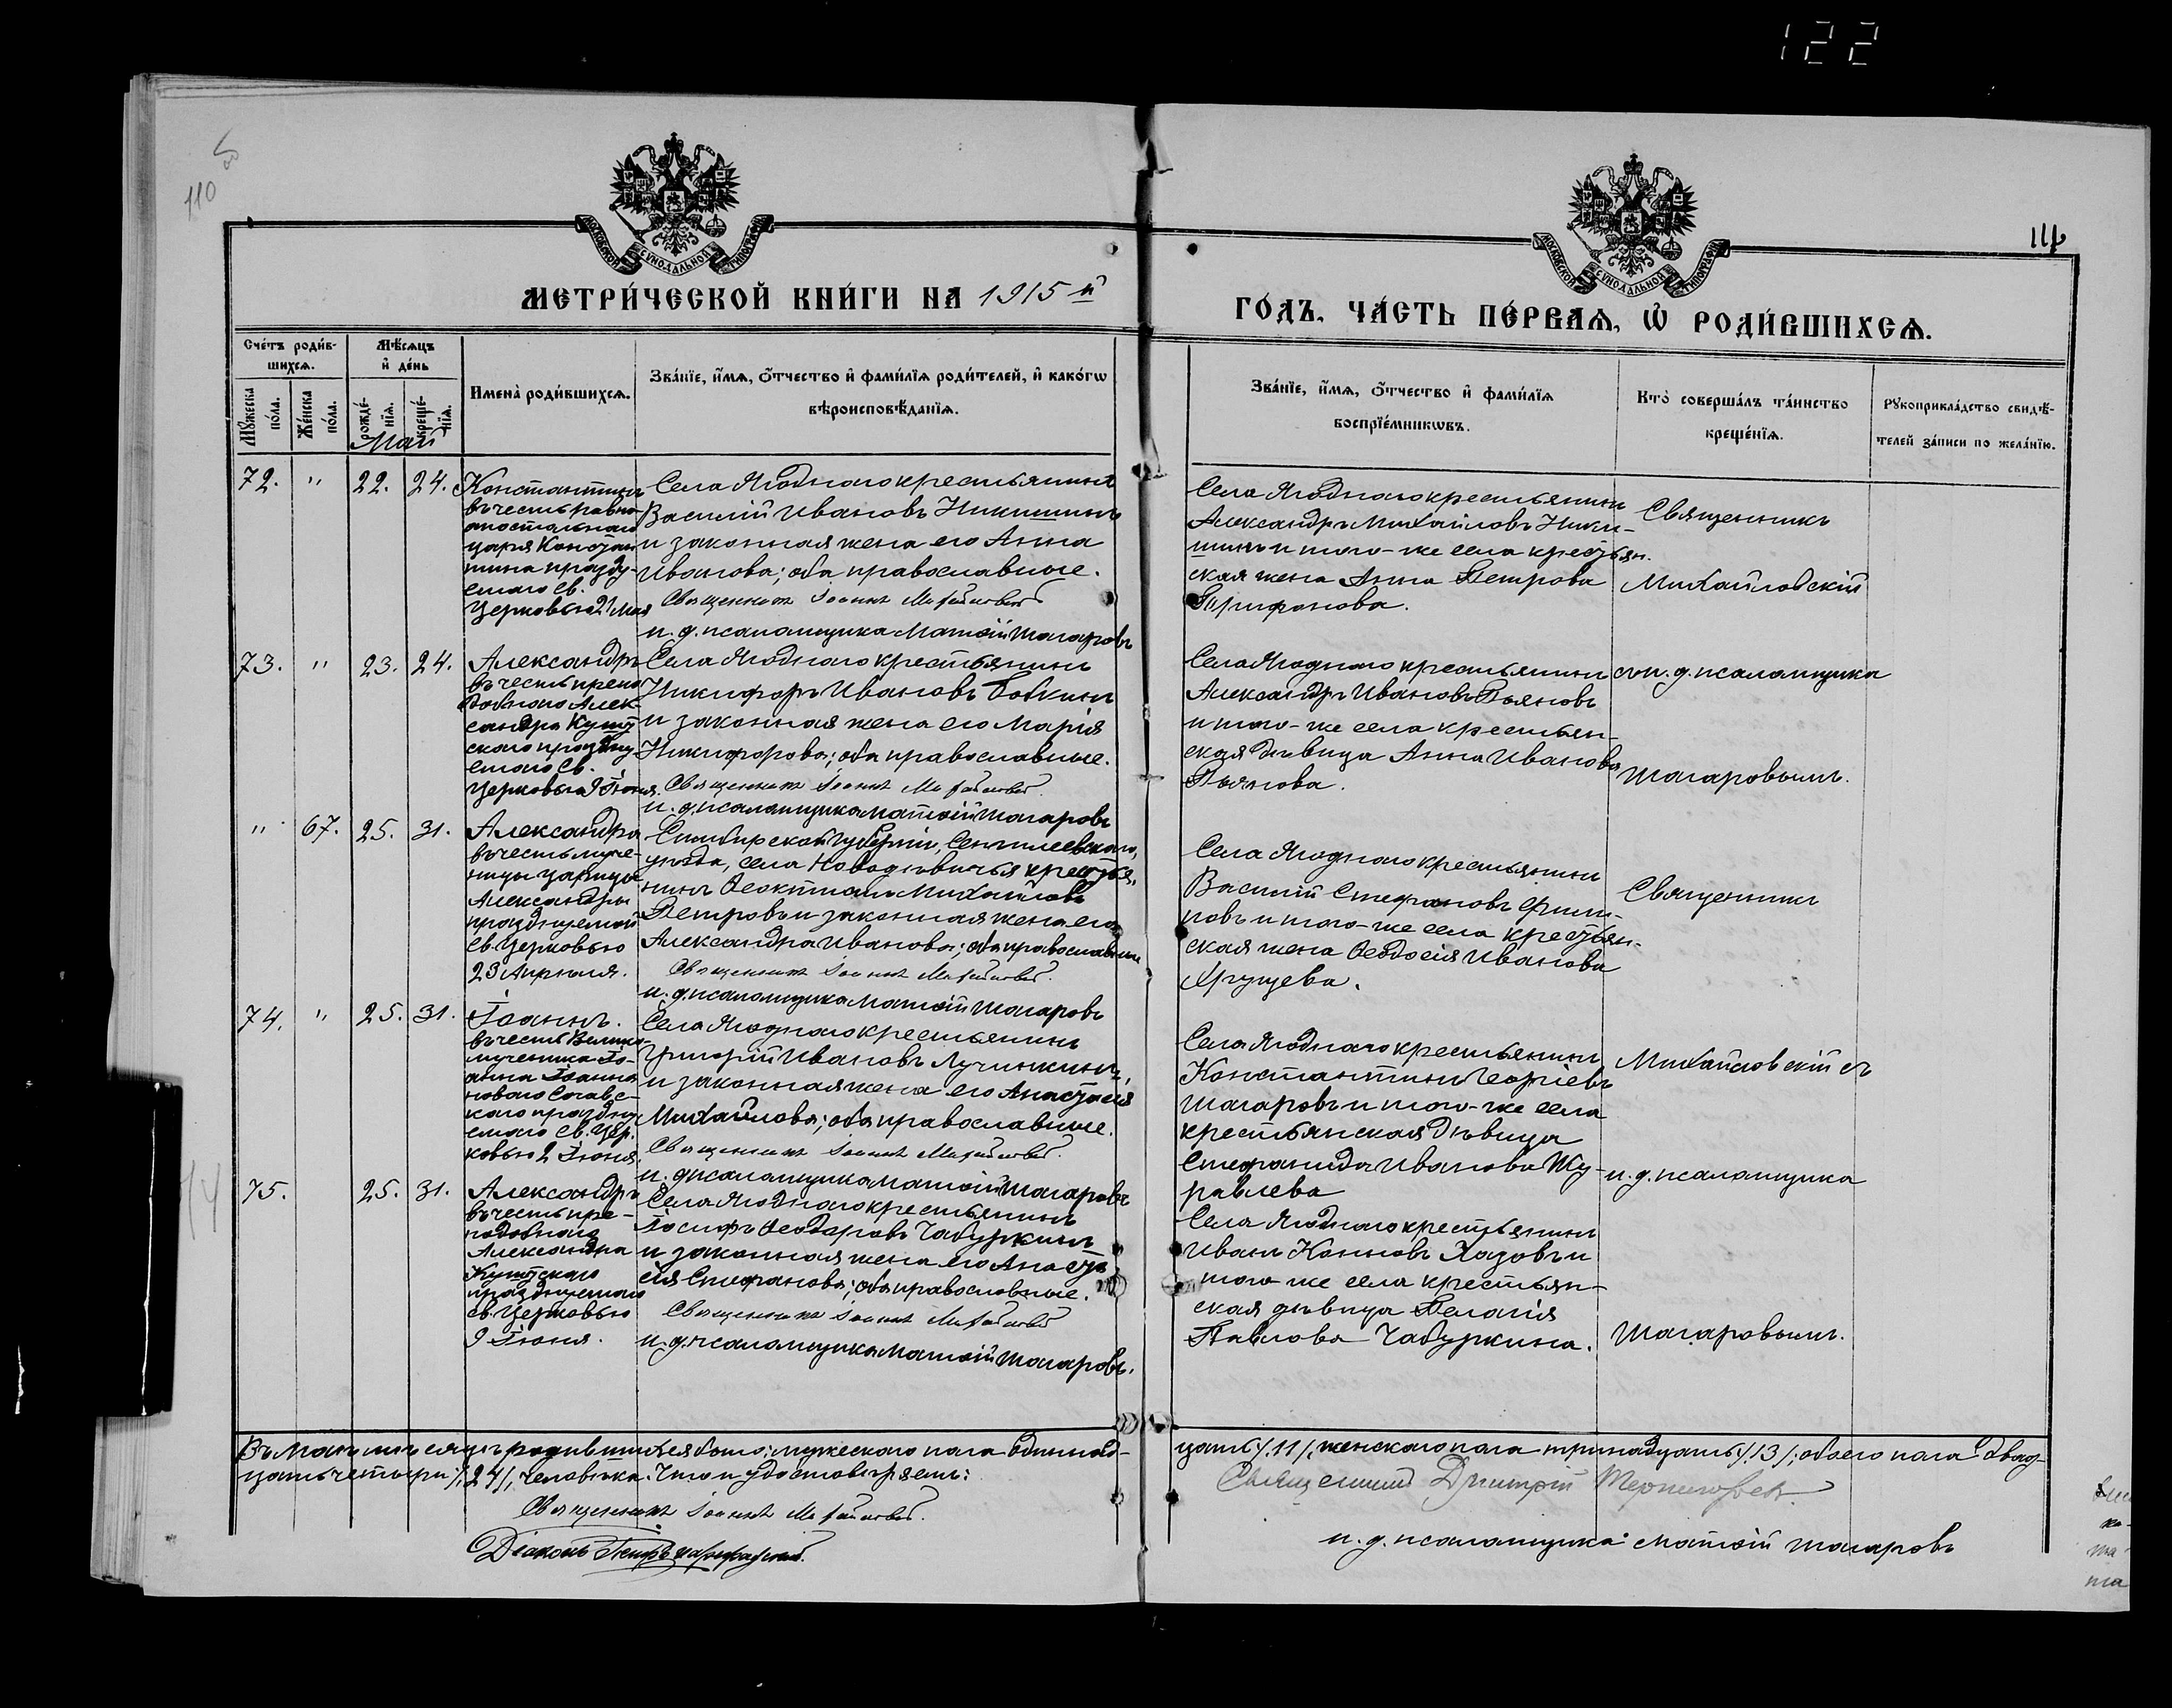 122
110
111
МОСКОВСКОЙ СѴНОДАЛЬНОЙ ТИПОГРАФІИ
МЕТРИ́ЧЕСКОЙ КНИ́ГИ НА 1915 й
МОСКОВСКОЙ СѴНОДАЛЬНОЙ ТИПОГРАФІИ
ГО́ДЪ, ЧА́СТЬ ПЕ́РВАѦ, Ѽ РОДИ́ВШИХСѦ.
Сче́тъ роди́в-
шихсѧ.
Мѣ́сѧцъ
и҆ де́нь
Мꙋжеска по́ла.
Же́нска по́ла.
рожде́нїѧ.
креще́нїѧ.
Имена̀ роди́вшихсѧ.
Зва́нїе, и҆́мѧ, ѻ҆́тчество и҆ фами́лїѧ роди́телей, и҆ како́гѡ
вѣроисповѣ́данїѧ.
Зва́нїе, и҆́мѧ, ѻ҆́тчество и҆ фами́лїѧ
воспрїе́мникѡвъ.
Кто̀ соверша́лъ та́инство
креще́нїѧ.
Рꙋкоприкла́дство свидѣ́-
телей за́писи по жела́нїю.
Май
72. " 22. 24.
Константинъ
въ честь равно-
апостольнаго
царя Констан
тина праздну-
емаго Св.
Церковью 21 Мая
Села Ягоднаго крестьянинъ
Василій Ивановъ Никишинъ
и законная жена его Анна
Иванова; оба православные.
Священникъ Іоаннъ Михайловскій
и. д. псаломщика Матѳій Шагаровъ
Села Ягоднаго крестьянинъ
Александръ Михайловъ Ники-
шинъ и того-же села крестьян-
ская жена Анна Петрова
Трифонова.
Священникъ
Михайловскій
73. " 23. 24.
Александръ
въ честь препо
добнаго Алек-
сандра Кушт
скаго праздну
емаго Св.
Церковью 9 Іюня.
Села Ягоднаго крестьянинъ
Никифоръ Ивановъ Бобкинъ
и законная жена его Марія
Никифорова; оба православные.
Священникъ Іоаннъ Михайловскій
и. д. псаломщика Матѳій Шагаровъ
Села Ягоднаго крестьянинъ
Александръ Ивановъ Пьяновъ
и того-же села крестьян-
ская дѣвица Анна Иванова
Пьянова.
съ и. д. псаломщика
Шагаровымъ.
" 67. 25. 31.
Александра
въ честь муче-
ницы царицы
Александры
празднуемой
Св. Церковью
23 Апрѣля.
Симбирской губерніи, Сенгилеевскаго
уѣзда, села Новодѣвичья крестья-
нинъ Ѳеоктистъ Михайловъ
Петровъ и законная жена его
Александра Иванова; оба православные
Священникъ Іоаннъ Михайловскій
и. д. псаломщика Матѳій Шагаровъ
Села Ягоднаго крестьянинъ
Василій Стефановъ Филип-
повъ и того-же села крестьян-
ская жена Ѳеодосія Иванова
Хрущева.
Священникъ
74. " 25. 31.
Іоаннъ.
въ честь Велико-
мученика Іо-
анна
новаго Сочавс-
каго праздну
емаго Св. Цер.
ковью 2 Іюня.
Села Ягоднаго крестьянинъ
Григорій Ивановъ Лучинкинъ,
и законная жена его Анастасія
Михайлова; оба православные.
Священникъ Іоаннъ Михайловскій
и. д. псаломщика Матѳій Шагаровъ
Села Ягоднаго крестьянинъ
Константинъ Георгіевъ
Шагаровъ и того-же села
крестьянская дѣвица
Стефанида Иванова Жу-
равлева
Михайловскій съ
и. д. псаломщика
75. 25. 31.
Александръ
въ честь пре-
подобнаго
Александра
Куштскаго
празднуемаго
св. Церковью
9 Іюня.
Села Ягоднаго крестьянинъ
Іосифъ Ѳеодоровъ Чабуркинъ
и законная жена его Анаста
сія Стефанова; оба православные.
Священникъ Іоаннъ Михайловскій
и. д. псаломщика Матѳій Шагаровъ.
Села Ягоднаго крестьянинъ
Иванъ Кононовъ Хазовъ и
того же села крестьян-
ская дѣвица Пелагія
Павлова Чабуркина.
Шагаровымъ.
Въ Маѣ мѣсяцѣ родившихся было: мужескаго пола одиннад-
цать /11/, женскаго пола тринадцать /13/; обоего пола двад-
цать четыри /24/, человѣка. Что и удостовѣряемъ:
Священникъ Іоаннъ Михайловскій
Священникъ Дмитрій
Діаконъ Петръ
и. д. псаломщика Матѳій Шагаровъ